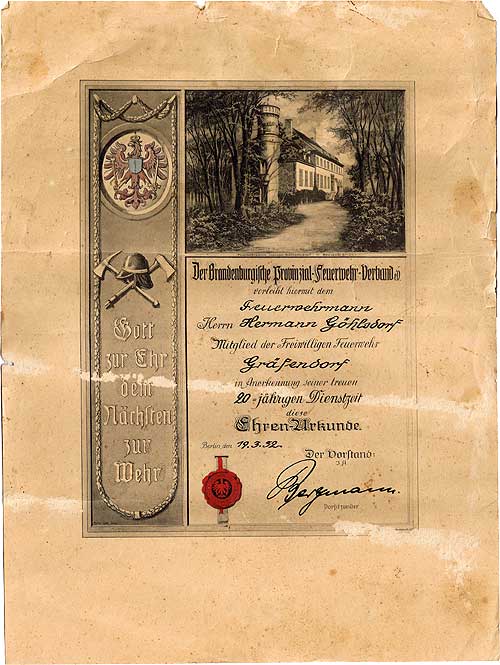 Gott
zur Ehr
dem
Nächsten
zur
Wehr
Der Brandenburgische Provinzial-Feuerwehr-Verband e.V.
verleiht hiermit dem
Feuerwehrmann
Herrn Hermann Göhlsdorf
Mitglied der Freiwilligen Feuerwehr
Gräfendorf
in Anerkennung seiner treuen
20-jährigen Dienstzeit
diese
Ehren-Urkunde.
Berlin, den 19.3.32.
Der Vorstand:
J.A.
Bergmann.
Vorsitzender